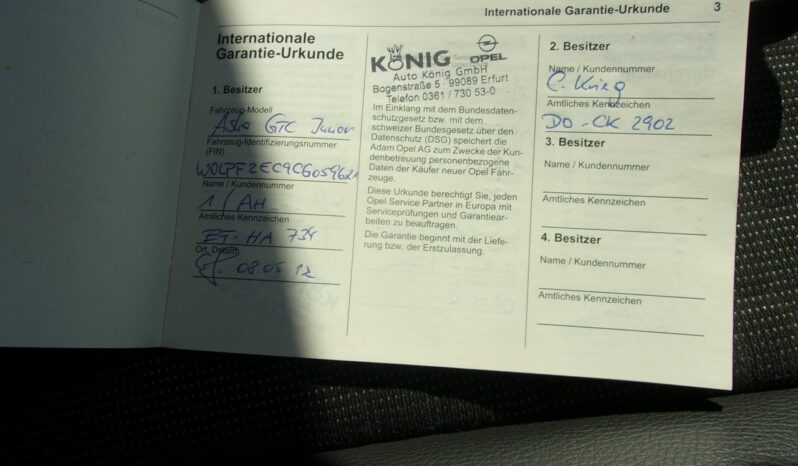 Internationale Garantie-Urkunde 3
Internationale
Garantie-Urkunde
1. Besitzer
Fahrzeug-Modell
Astra GTC Junior
Fahrzeug-Identifizierungsnummer
(FIN)
Name / Kundennummer
1 / AH
Amtliches Kennzeichen
HA 734
Ort, Datum
Ef. 08.05.12
KÖNIG OPEL
Auto König GmbH
Bogenstraße 5 · 99089 Erfurt
Telefon 0361 / 730 53-0
Im Einklang mit dem Bundesdaten-
schutzgesetz bzw. mit dem
schweizer Bundesgesetz über den
Datenschutz (DSG) speichert die
Adam Opel AG zum Zwecke der Kun-
denbetreuung personenbezogene
Daten der Käufer neuer Opel Fahr-
zeuge.
Diese Urkunde berechtigt Sie, jeden
Opel Service Partner in Europa mit
Serviceprüfungen und Garantiear-
beiten zu beauftragen.
Die Garantie beginnt mit der Liefe-
rung bzw. der Erstzulassung.
2. Besitzer
Name / Kundennummer
C. Krieg
Amtliches Kennzeichen
DO - CK 2902
3. Besitzer
Name / Kundennummer
Amtliches Kennzeichen
4. Besitzer
Name / Kundennummer
Amtliches Kennzeichen